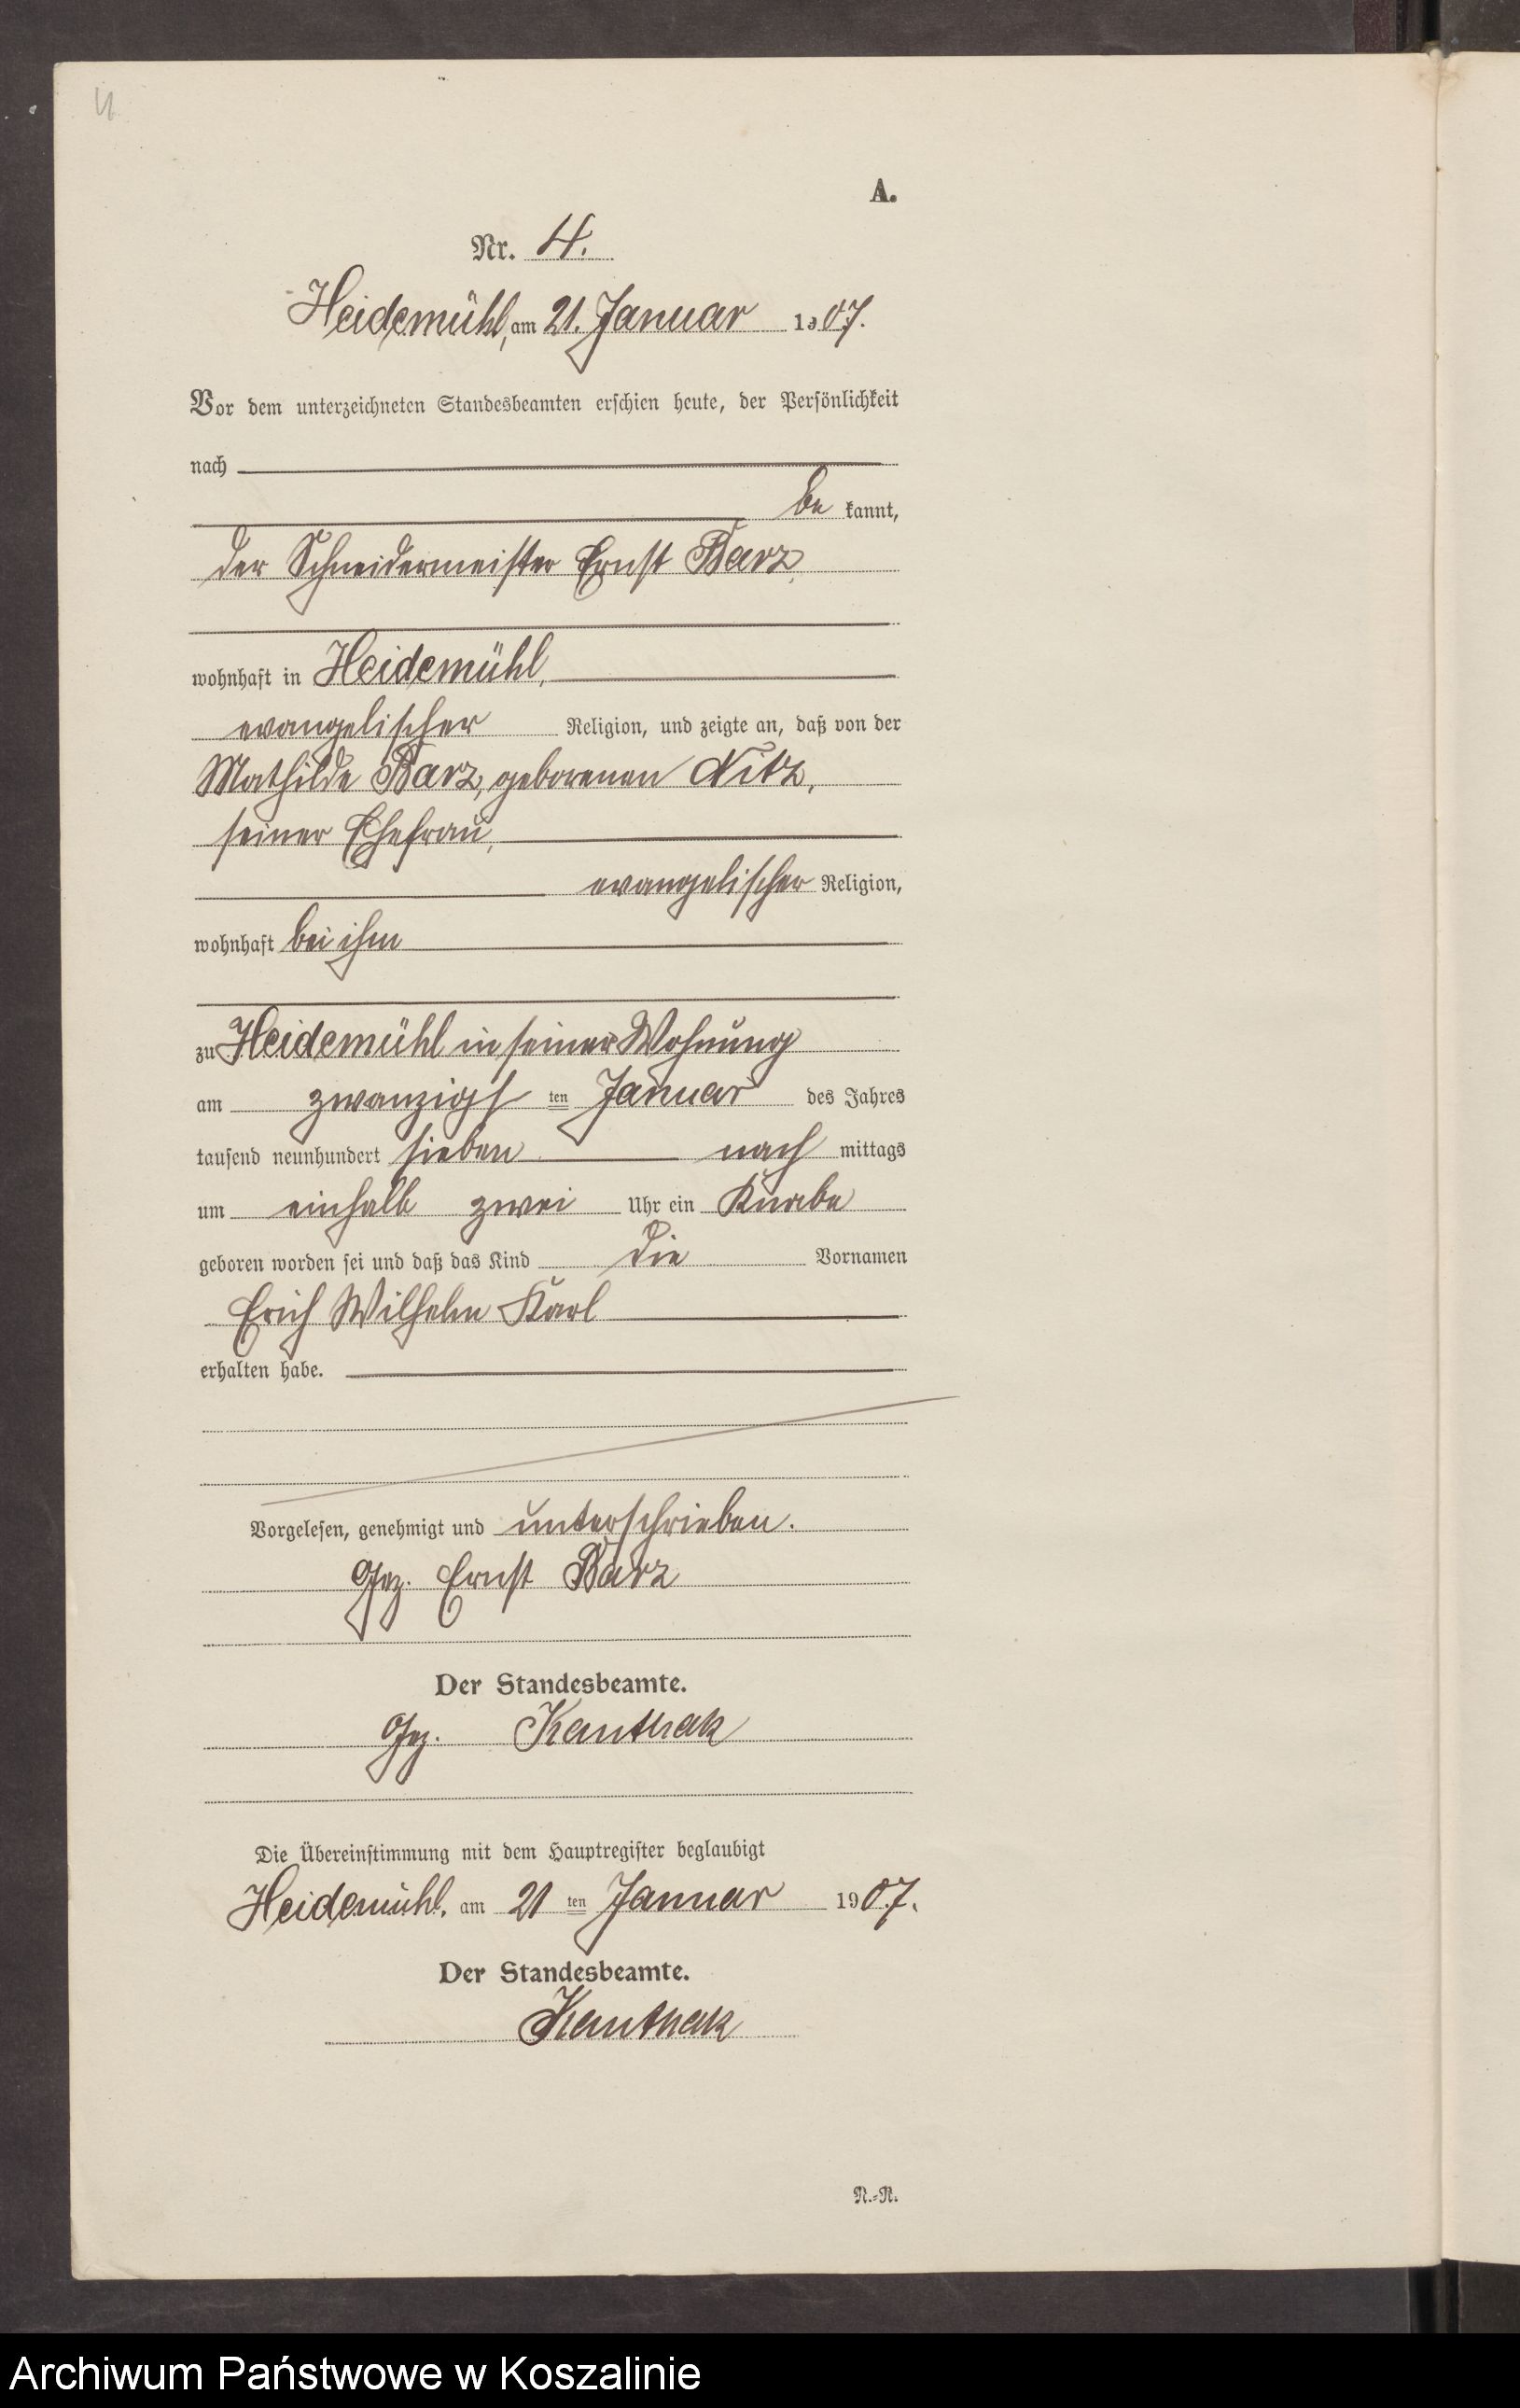 4
A.
Nr. 4.
Heidemühl, am 21. Januar 1907.
Vor dem unterzeichneten Standesbeamten erschien heute, der Persönlichkeit
nach
be kannt,
der Schneidermeister Ernst Barz,
wohnhaft in Heidemühl,
evangelischer Religion, und zeigte an, daß von der
Mathilde Barz, geborenen Nitz,
seiner Ehefrau,
evangelischer Religion,
wohnhaft bei ihm
zu Heidemühl in seiner Wohnung
am zwanzigs ten Januar des Jahres
tausend neunhundert sieben nach mittags
um einhalb zwei Uhr ein Knabe
geboren worden sei und daß das Kind die Vornamen
Erich Wilhelm Karl
erhalten habe.
Vorgelesen, genehmigt und unterschrieben.
Gez. Ernst Barz
Der Standesbeamte.
Gez. Kanthak
Die Übereinstimmung mit dem Hauptregister beglaubigt
Heidemühl, am 21 ten Januar 1907.
Der Standesbeamte.
Kanthak
N.-R.
Archiwum Państwowe w Koszalinie